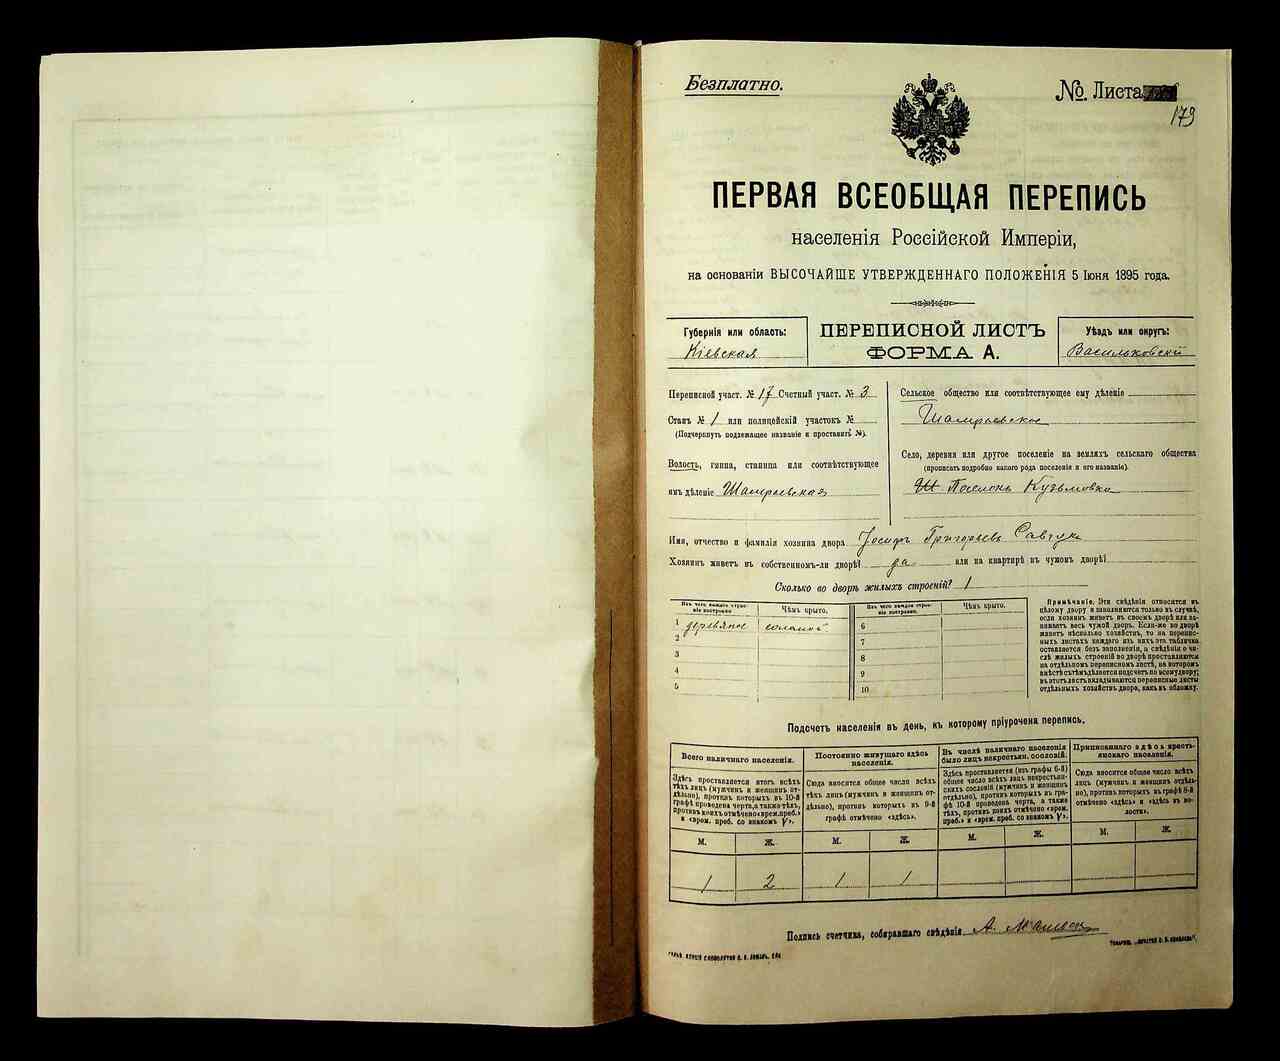 Безплатно.
№ Листа
179
ПЕРВАЯ ВСЕОБЩАЯ ПЕРЕПИСЬ
населенія Россійской Имперіи,
на основаніи ВЫСОЧАЙШЕ УТВЕРЖДЕННАГО ПОЛОЖЕНІЯ 5 Іюня 1895 года.
Губернія или область:
Кіевская
ПЕРЕПИСНОЙ ЛИСТЪ
ФОРМА А.
Уѣздъ или округъ:
Васильковскій
Переписной участ. № 17 Счетный участ. № 3
Станъ № 1 или полицейскій участокъ №
(Подчеркнуть подлежащее названіе и проставить №).
Волость, гмина, станица или соотвѣтствующее
имъ дѣленіе Шамраевская
Сельское общество или соотвѣтствующее ему дѣленіе
Шамраевское
Село, деревня или другое поселеніе на земляхъ сельскаго общества
(прописать подробно какого рода поселеніе и его названіе).
Кузьмовка
Имя, отчество и фамилія хозяина двора Іосифъ Григорьевъ Савчук
Хозяинъ живетъ въ собственномъ-ли дворѣ? да или на квартирѣ въ чужомъ дворѣ?
Сколько во дворѣ жилыхъ строеній? 1
Изъ чего каждое строеніе построено.
Чѣмъ крыто.
1 деревяное соломой
2
3
4
5
Изъ чего каждое строеніе построено.
Чѣмъ крыто.
6
7
8
9
10
Примѣчаніе. Эти свѣдѣнія относятся къ
цѣлому двору и заполняются только въ случаѣ,
если хозяинъ живетъ въ своемъ дворѣ или за-
нимаетъ весь чужой дворъ. Если-же во дворѣ
живетъ нѣсколько хозяйствъ, то на перепис-
ныхъ листахъ каждаго изъ нихъ эта табличка
оставляется безъ заполненія, а свѣдѣнія о чи-
слѣ жилыхъ строеній во дворѣ проставляются
на отдѣльномъ переписномъ листѣ, на которомъ
вмѣстѣ съ тѣмъ дѣлается подсчетъ по всему двору;
въ этотъ листъ вкладываются переписные листы
отдѣльныхъ хозяйствъ двора, какъ въ обложку.
Подсчетъ населенія въ день, къ которому пріурочена перепись.
Всего наличнаго населенія.
Здѣсь проставляется итогъ всѣхъ
тѣхъ лицъ (мужчинъ и женщинъ от-
дѣльно), противъ которыхъ въ 10-й
графѣ проведена черта, а также тѣхъ,
противъ коихъ отмѣчено «врем. преб.»
и «врем. преб. со знакомъ V».
Постоянно живущаго здѣсь
населенія.
Сюда вносится общее число всѣхъ
тѣхъ лицъ (мужчинъ и женщинъ от-
дѣльно), противъ которыхъ въ 9-й
графѣ отмѣчено «здѣсь».
Въ числѣ наличнаго населенія
было лицъ некрестьян. сословій.
Здѣсь проставляется (изъ графы 6-й)
общее число всѣхъ лицъ некрестьян-
скихъ сословій (мужчинъ и женщинъ
отдѣльно), противъ которыхъ въ гра-
фѣ 10-й проведена черта, а также
тѣхъ, противъ коихъ отмѣчено «врем.
преб.» и «врем. преб. со знакомъ V».
Приписаннаго здѣсь кресть-
янскаго населенія.
Сюда вносится общее число всѣхъ
лицъ (мужчинъ и женщинъ отдѣль-
но), противъ которыхъ въ графѣ 8-й
отмѣчено «здѣсь» и «здѣсь въ во-
лости».
М. Ж. М. Ж. М. Ж. М. Ж.
1 2 1 1
Подпись счетчика, собиравшаго свѣдѣнія А.